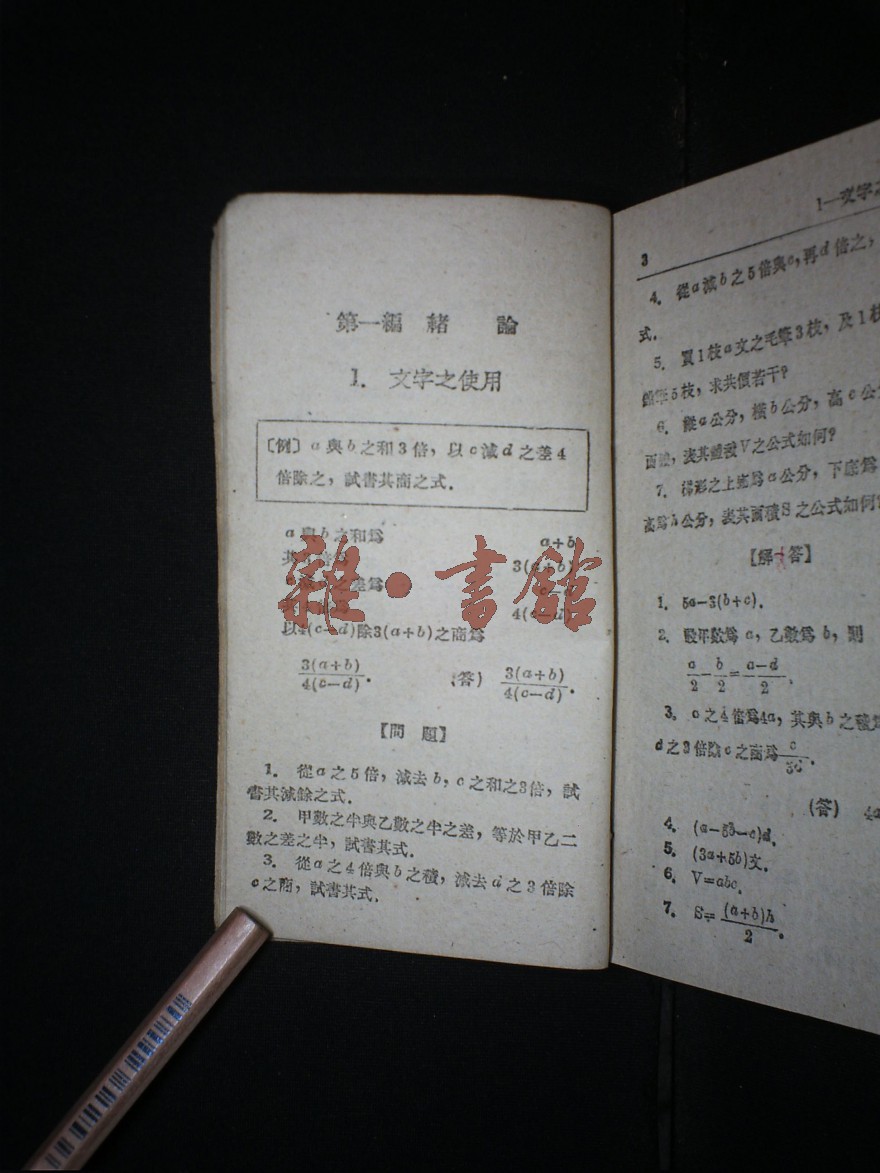 第一編 緒 論
1. 文字之使用
〔例〕 a與b之和3倍，以c減d之差4
倍除之，試書其商之式．
a與b之和爲 a+b
3(a+b)
差爲
4(c-d)
以4(c-d)除3(a+b)之商爲
3(a+b)/4(c-d)． (答) 3(a+b)/4(c-d)．
【問 題】
1. 從a之5倍，減去b，c之和之3倍，試
書其減餘之式．
2. 甲數之半與乙數之半之差，等於甲乙二
數之差之半，試書其式．
3. 從a之4倍與b之積，減去d之3倍除
c之商，試書其式．
雜·書館
3
1—文字之
4. 從a減b之5倍與c，再d倍之，
式．
5. 買1枝a文之毛筆3枝，及1枝
鉛筆5枝，求共價若干？
6. 縱a公分，橫b公分，高c公
表其體積V之公式如何？
7. 梯形之上底爲a公分，下底爲
高爲h公分，表其面積S之公式如何？
【解答】
1. 5a-3(b+c)．
2. 設甲數爲a，乙數爲b，則
a/2-b/2=a-d/2．
3. c之4倍爲4a，其與b之積爲
d之3倍除c之商爲c/3c．
(答) 4a
4. (a-5b-c)d．
5. (3a+5b)文．
6. V=abc．
7. S=(a+b)h/2．